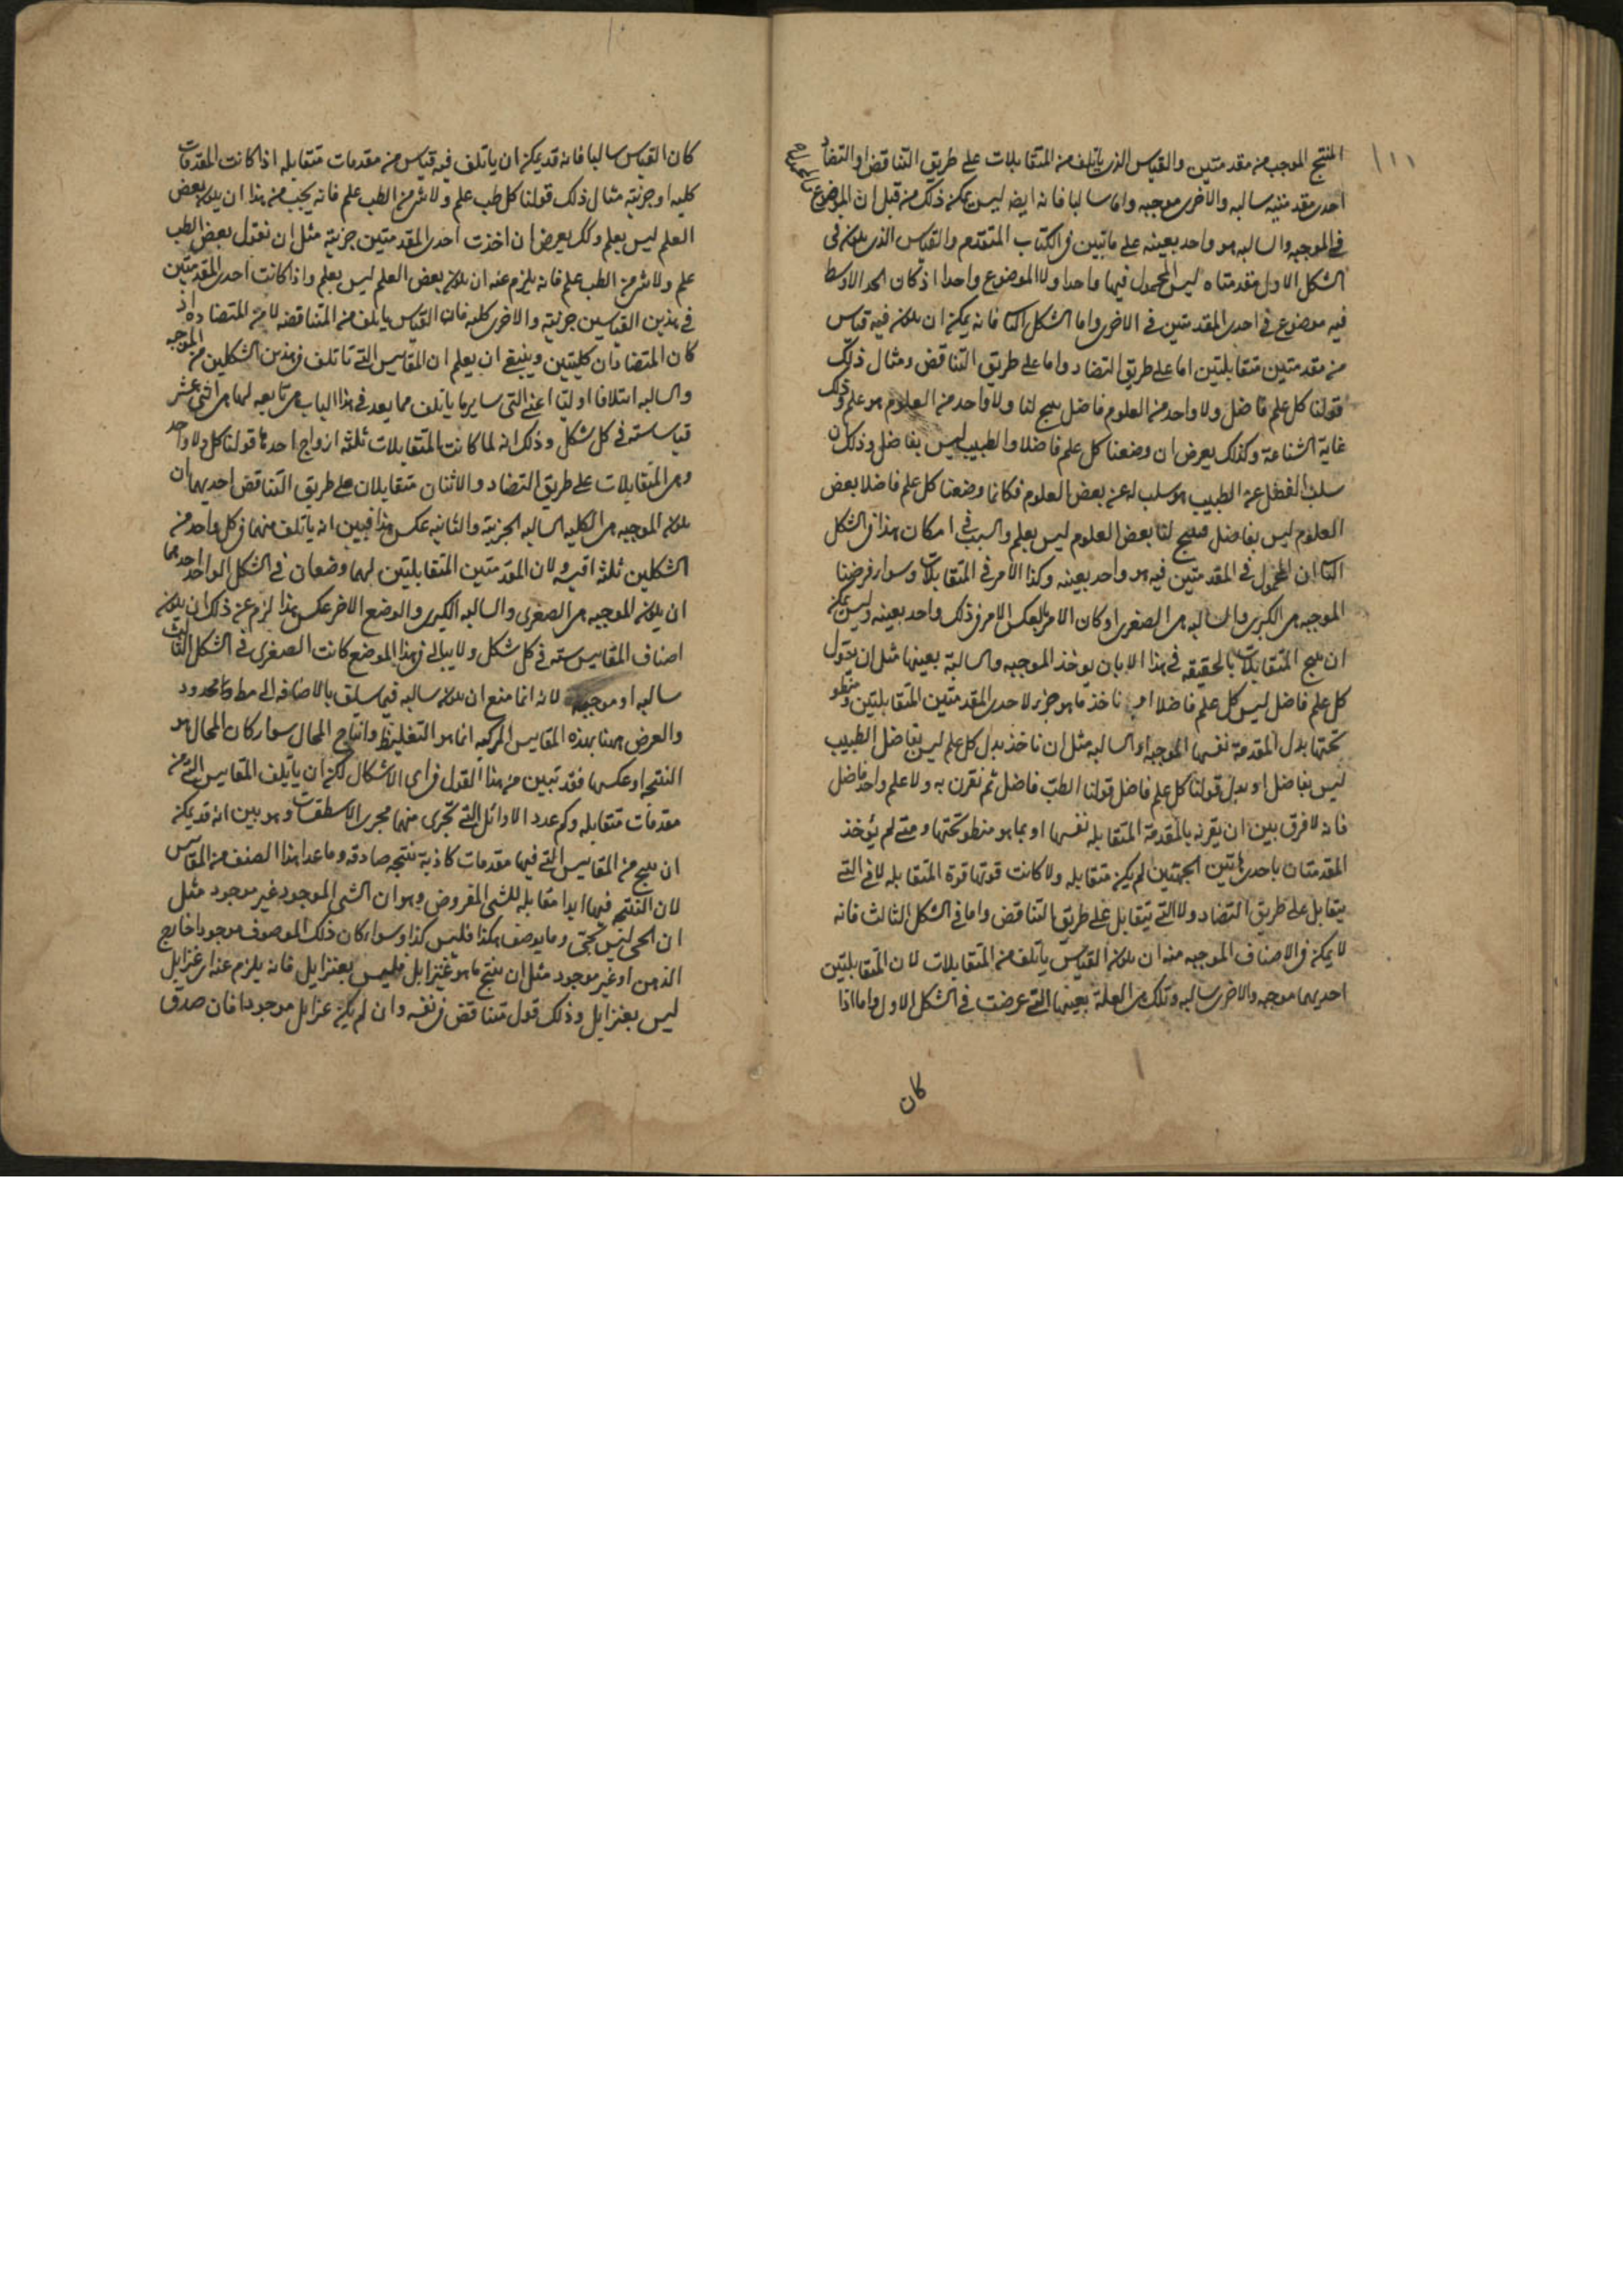 ١١١
المنتج الموجب من مقدمتين والقياس الذى ياتلف من المتقابلات على طريق التناقض او التضاد
احدى مقدمتيه سالبه والاخرى موجبه واما سالبا فانه ايضه ليس يمكن ذلك من قبل ان الموضوع
فى الموجبه والسالبه هو واحد بعينه على ما تبين فى الكتاب المتقدم والقياس الذى يكون فى
الشكل الاول مقدمتاه ليس المحمول فيها واحدا ولا الموضوع واحدا اذ كان الحد الاوسط
فيه موضوع فى احدى المقدمتين فى الاخرى واما الشكل الثا فانه يمكن ان يكون فيه قياس
من مقدمتين متقابلتين اما على طريق التضاد واما على طريق التناقض ومثال ذلك
قولنا كل علم فاضل ولا واحد من العلوم فاضل ينتج لنا ولا واحد من العلوم هو علم وذلك
غاية الشناعة وكذلك يعرض ان وضعنا كل علم فاضلا والطبيب ليس بفاضل وذلك ان
سلب الفضل عن الطبيب هو سلب له عن بعض العلوم فكانا وضعنا كل علم فاضلا بعض
العلوم ليس بفاضل فينتج لنا بعض العلوم ليس بعلم والسبب فى امكان هذا فى الشكل
الثا ان المحمول فى المقدمتين فيه هو واحد بعينه وكذا الامر فى المتقابلات وسواء فرضنا
الموجبه هى الكبرى والسالبه هى الصغرى او كان الامر بالعكس الامر فى ذلك واحد بعينه وليس يمكن
ان ينتج المتقابلات بالحقيقه فى هذا الا بان يوخذ الموجبه والسالبة بعينها مثل ان يقول
كل علم فاضل ليس كل علم فاضلا او ناخذ ما هو جزء لاحدى المقدمتين المتقابلتين ومنطو
تحتها بدل المقدمة نفسها الموجبه او السالبه مثل ان ناخذ بدل كل علم ليس بفاضل الطبيب
ليس بفاضل او بدل قولنا كل علم فاضل قولنا الطب فاضل ثم نقرن به ولا علم واحد فاضل
فانه لا فرق بين ان يقرن بالمقدمة المتقابله نفسها او بما هو منطو تحتها ومتى لم يؤخذ
المقدمتان باحدى هاتين الجهتين لم يكن متقابله ولا كانت قوتها قوة المتقابله لا فى التى
يتقابل على طريق التضاد ولا التى يتقابل على طريق التناقض واما فى الشكل الثالث فانه
لا يمكن فى الاصناف الموجبه منه ان يكون القياس ياتلف من المتقابلات لان المتقابلتين
احديهما موجبه والاخرى سالبه وتلك هى العلة بعينها التى عرضت فى الشكل الاول واما اذا
كان
كان القياس سالبا فانه قد يمكن ان ياتلف فيه قياس من مقدمات متقابله اذا كانت المقدمات
كليه او جزئيه مثال ذلك قولنا كل طب علم ولا شى من الطب علم فانه يجب من هذا ان يكون بعض
العلم ليس بعلم وكك يعرض ان اخذت احدى المقدمتين جزئية مثل ان نقول بعض الطب
علم ولا شى من الطب علم فانه يلزم عنه ان يكون بعض العلم ليس بعلم واذا كانت احدى المقدمتين
فى هذين القياسين جزئية والاخرى كليه فان القياس ياتلف من المتناقضه لا من المتضاده اذ
كان المتضادان كليتين وينبغى ان يعلم ان المقاييس التى تاتلف فى هذين الشكلين من الموجبه
والسالبه ائتلافا اوليا اعنى التى سايرها ياتلف مما يعد فى هذا الباب هى تابعه لها هى اثنى عشر
قياسا سته فى كل شكل وذلك انه لما كانت المتقابلات ثلثه ازواج احدها قولنا كل ولا واحد
وهى المتقابلات على طريق التضاد والاثنان متقابلان على طريق التناقض احديهما ان
يكون الموجبه هى الكليه السالبه الجزئية والثانيه عكس هذا فبين انه ياتلف منهما فى كل واحد من
الشكلين ثلثه اقيسه ولان المقدمتين المتقابلتين لهما وضعان فى الشكل الواحد احدهما
ان يكون الموجبه هى الصغرى والسالبه الكبرى والوضع الاخر عكس هذا لزم عن ذلك ان يكون
اصناف المقاييس سته فى كل شكل ولا يبالى فى هذا الموضع كانت الصغرى فى الشكل الثالث
سالبه او موجبه لانه انما منع ان يكون سالبه فيما سلف بالاضافه الى مط محدود
والعرض ههنا بهذه المقاييس المركبه انما هو التغليظ وانتاج المحال سواء كان المحال هو
النتيجه او عكسها فقد تبين من هذا القول فى اى الاشكال يمكن ان ياتلف المقاييس التى من
مقدمات متقابله وكم عدد الاوائل التى تجرى منها مجرى الاسطقسات وهو بين انه قد يمكن
ان ينتج من المقاييس التى فيها مقدمات كاذبة نتيجه صادقه وما عدا هذا الصنف من المقاييس
لان النتيجه فيها ابدا مقابله للشى المفروض وهو ان الشى الموجود غير موجود مثل
ان الحى ليس بحى وما يوصف بكذا فليس كذا وسواء كان ذلك الموصوف موجودا خارج
الذهن او غير موجود مثل ان ينتج ما هو عنزايل فليس بعنزايل فانه يلزم عنه ان عنزايل
ليس بعنزايل وذلك قول متناقض فى نفسه وان لم يكن عنزايل موجودا فان صدق